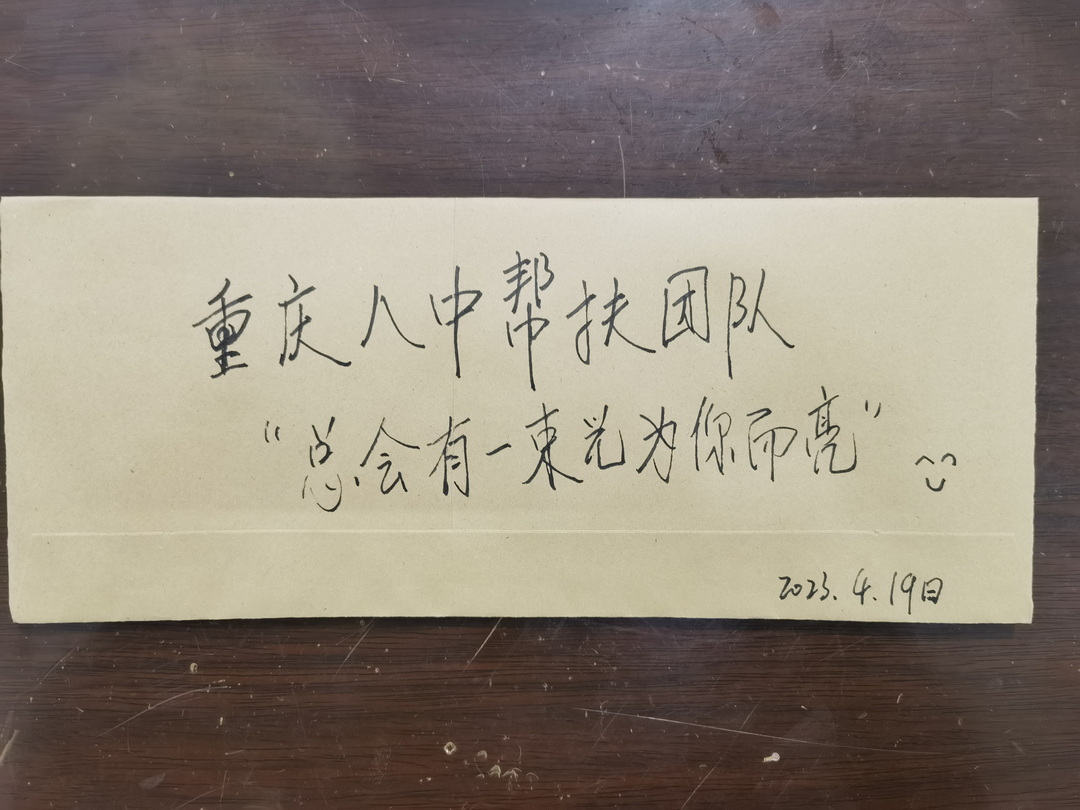 重庆八中帮扶团队
“总会有一束光为你而亮”
2023.4.19日